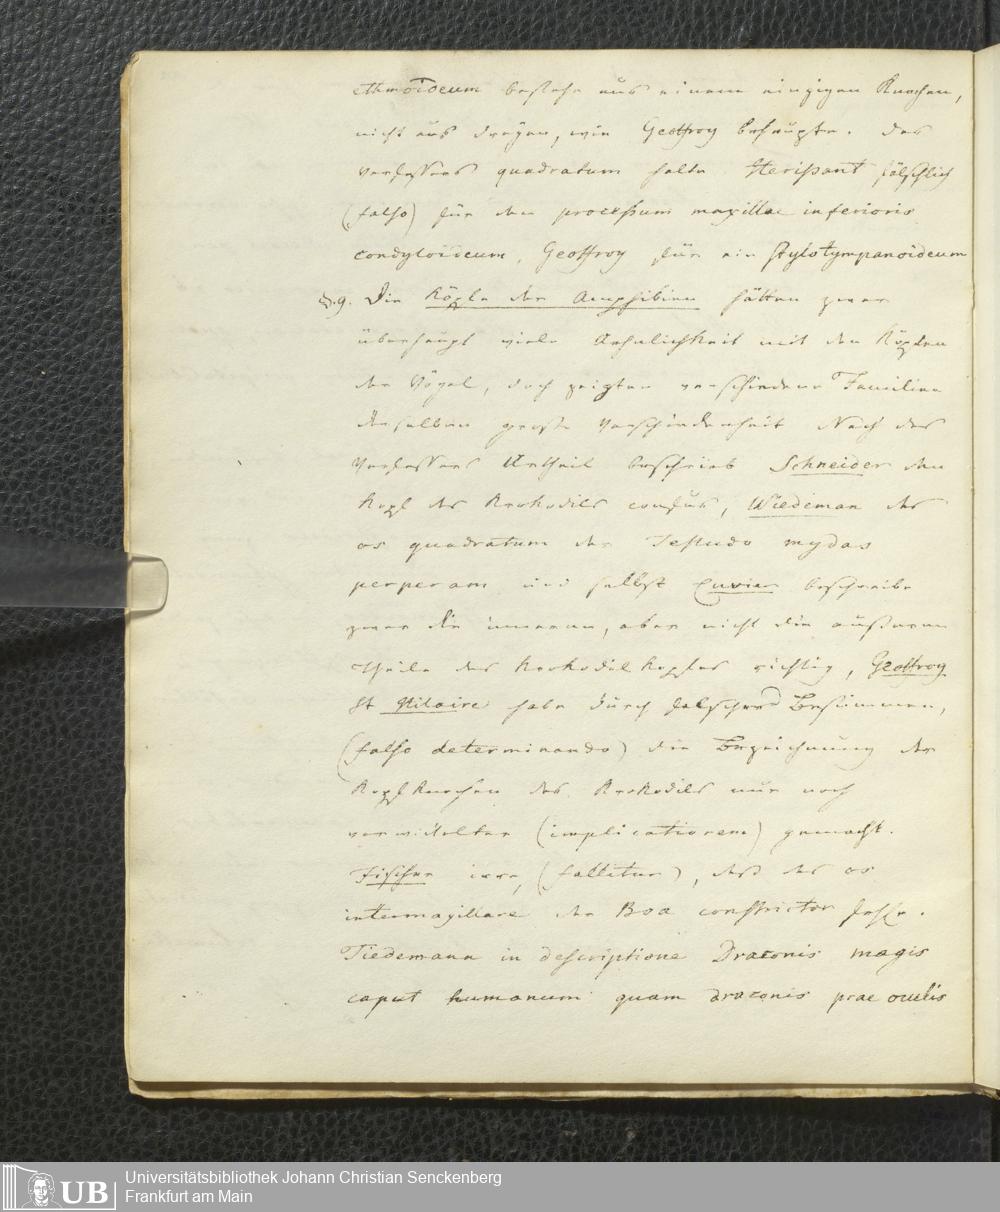 ethmoideum bestehe aus einem einzigen Knochen,
nicht aus dreyen, wie Geoffroy behaupte. Das
Verfassers quadratum halte Herißant fälschlich
(falso) für den processum maxillae inferioris
condyloideum, Geoffroy für ein stylotympanoideum
§.9. Die Köpfe der Amphibien hätten zwar
überhaupt viele Aehnlichkeit mit den Köpfen
der Vögel, doch zeigten verschiedene Familien
derselben große Verschiedenheit Nach des
Verfassers Urtheil beschrieb Schneider den
Kopf des Krokodils confus, Wiedeman das
os quadratum der Testudo mydas
perperam und selbst Cuvier beschreibe
zwar die inneren, aber nicht die äußeren
Theile des Krokodilkopfes richtig, Geoffroy
St Hilaire habe durch falsches Bestimmen,
(falso determinando) die Bezeichnung der
Kopfknochen des Krokodils nur noch
verwickelter (implicatiorem) gemacht.
Fischer irre, (fallitur), daß das os
intermaxillare der Boa constrictor fehle.
Tiedemann in descriptione Draconis magis
caput humanum quam draconis prae oculis
UB
Universitätsbibliothek Johann Christian Senckenberg
Frankfurt am Main